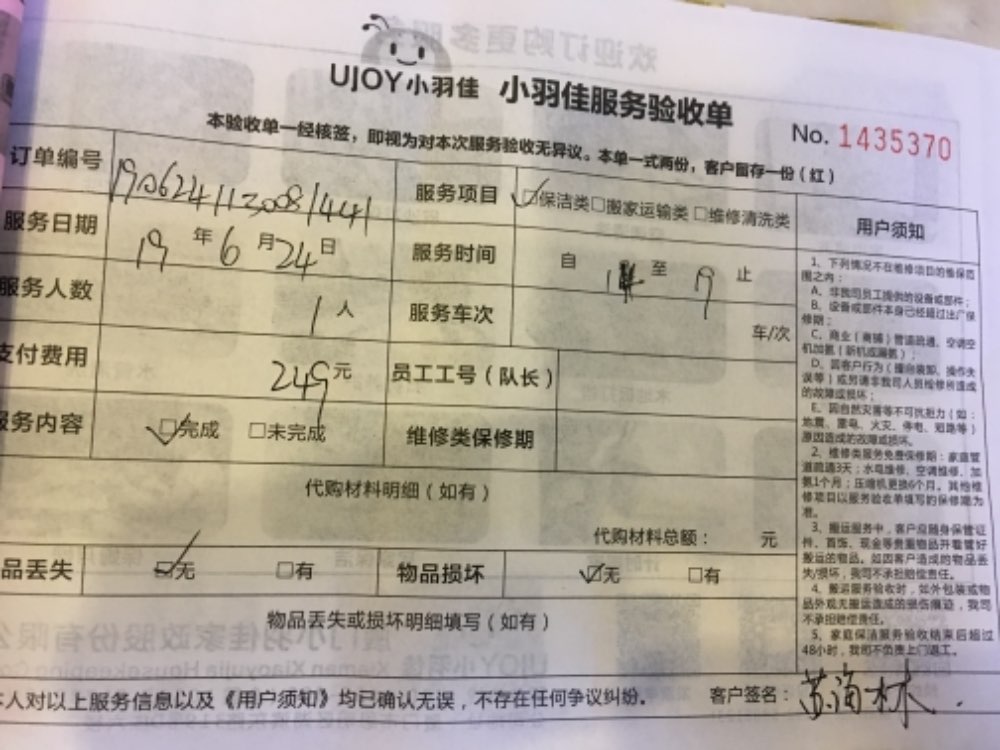 UJOY小羽佳 小羽佳服务验收单
No. 1435370
本验收单一经核签，即视为对本次服务验收无异议。本单一式两份，客户留存一份（红）
订单编号 190624113081441 服务项目 ☑保洁类□搬家运输类□维修清洗类 用户须知
服务日期 19年6月24日 服务时间 自 至 19 止
服务人数 1人 服务车次 车/次
支付费用 249元 员工工号（队长）
服务内容 ☑完成 □未完成 维修类保修期
代购材料明细（如有）
代购材料总额： 元
品丢失 ☑无 □有 物品损坏 ☑无 □有
物品丢失或损坏明细填写（如有）
1、下列情况不在维修项目的维保范
围之内：
A、非我司员工提供的设备或部件；
B、设备或部件本身已经超过出厂保
修期；
C、商业（商铺）管道疏通、空调空
机加氟（新机或漏氟）；
D、因客户行为（擅自装卸、操作失
误等）或另请非我司人员检修所造成
的故障或损坏；
E、因自然灾害等不可抗拒力（如：
地震、雷电、火灾、停电、短路等）
原因造成的故障或损坏。
2、维修类服务免费保修期：家庭管
道疏通3天；水电维修、空调维修、加
氟1个月；压缩机更换6个月。其他维
修项目以服务验收单填写的保修期为
准。
3、搬运服务中，客户应随身保管证
件、首饰、现金等贵重物品并看管好
搬运的物品。如因客户造成的物品丢
失/损坏，我司不承担赔偿责任。
4、搬运服务验收时，如外包装或物
品外观无搬运造成的损伤痕迹，我司
不承担赔偿责任。
5、家庭保洁服务验收结束后超过
48小时，我司不负责上门返工。
本人对以上服务信息以及《用户须知》均已确认无误，不存在任何争议纠纷。 客户签名：